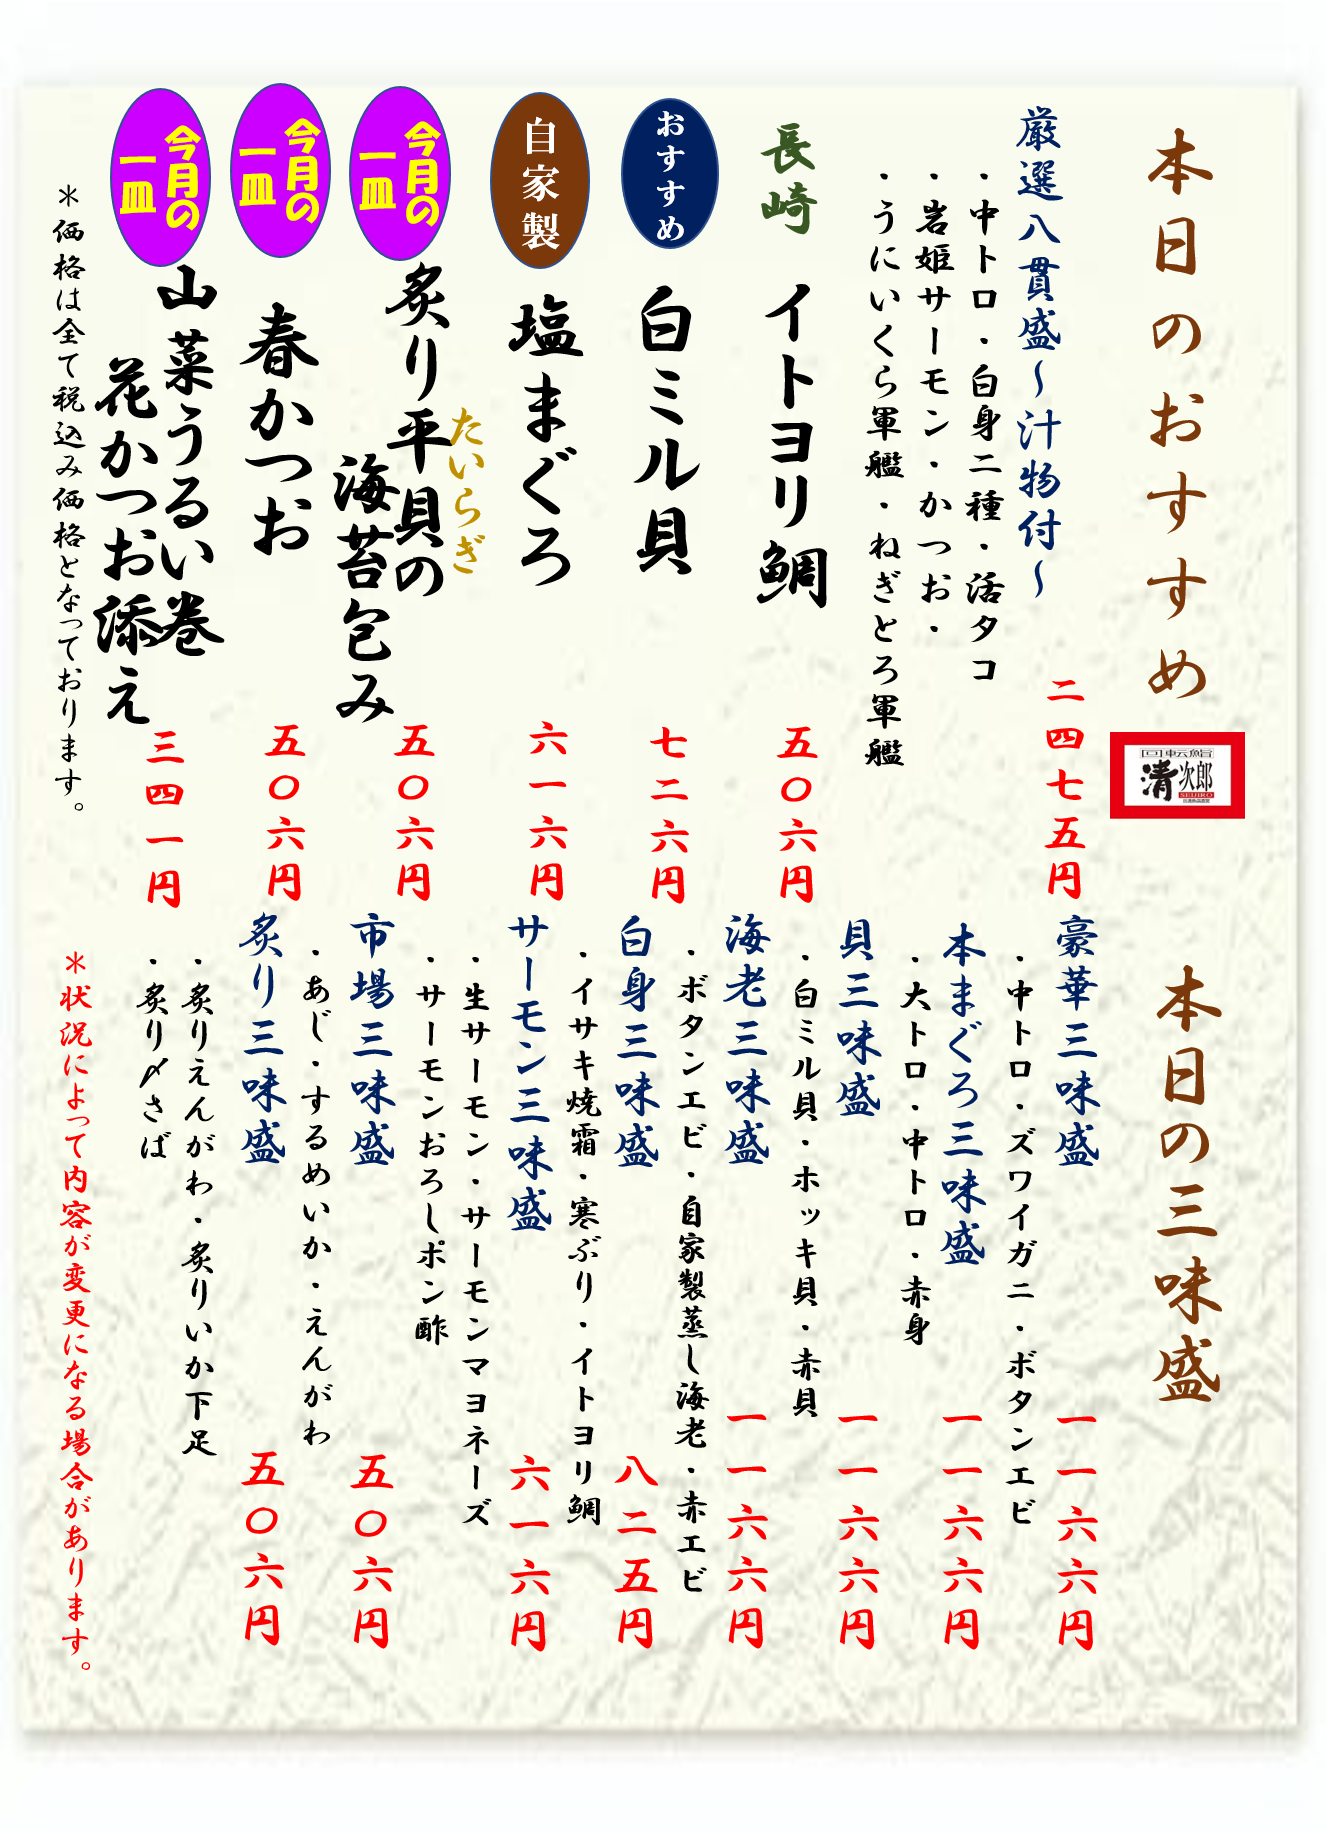 本日のおすすめ
回転鮨
清次郎
SEIJIRO
厳選八貫盛～汁物付～
二四七五円
・中トロ・白身二種・活タコ
・岩姫サーモン・かつお・
・うにいくら軍艦・ねぎとろ軍艦
長崎
イトヨリ鯛
五〇六円
おすすめ
白ミル貝
七二六円
自家製
塩まぐろ
六一六円
今月の
一皿
たいらぎ
炙り平貝の
海苔包み
五〇六円
今月の
一皿
春かつお
五〇六円
今月の
一皿
山菜うるい巻
花かつお添え
三四一円
＊価格は全て税込み価格となっております。
本日の三味盛
豪華三味盛
一一六六円
・中トロ・ズワイガニ・ボタンエビ
本まぐろ三味盛
一一六六円
・大トロ・中トロ・赤身
貝三味盛
一一六六円
・白ミル貝・ホッキ貝・赤貝
海老三味盛
一一六六円
・ボタンエビ・自家製蒸し海老・赤エビ
白身三味盛
八二五円
・イサキ焼霜・寒ぶり・イトヨリ鯛
サーモン三味盛
六一六円
・生サーモン・サーモンマヨネーズ
・サーモンおろしポン酢
市場三味盛
五〇六円
・あじ・するめいか・えんがわ
炙り三味盛
五〇六円
・炙りえんがわ・炙りいか下足
・炙り〆さば
＊状況によって内容が変更になる場合があります。